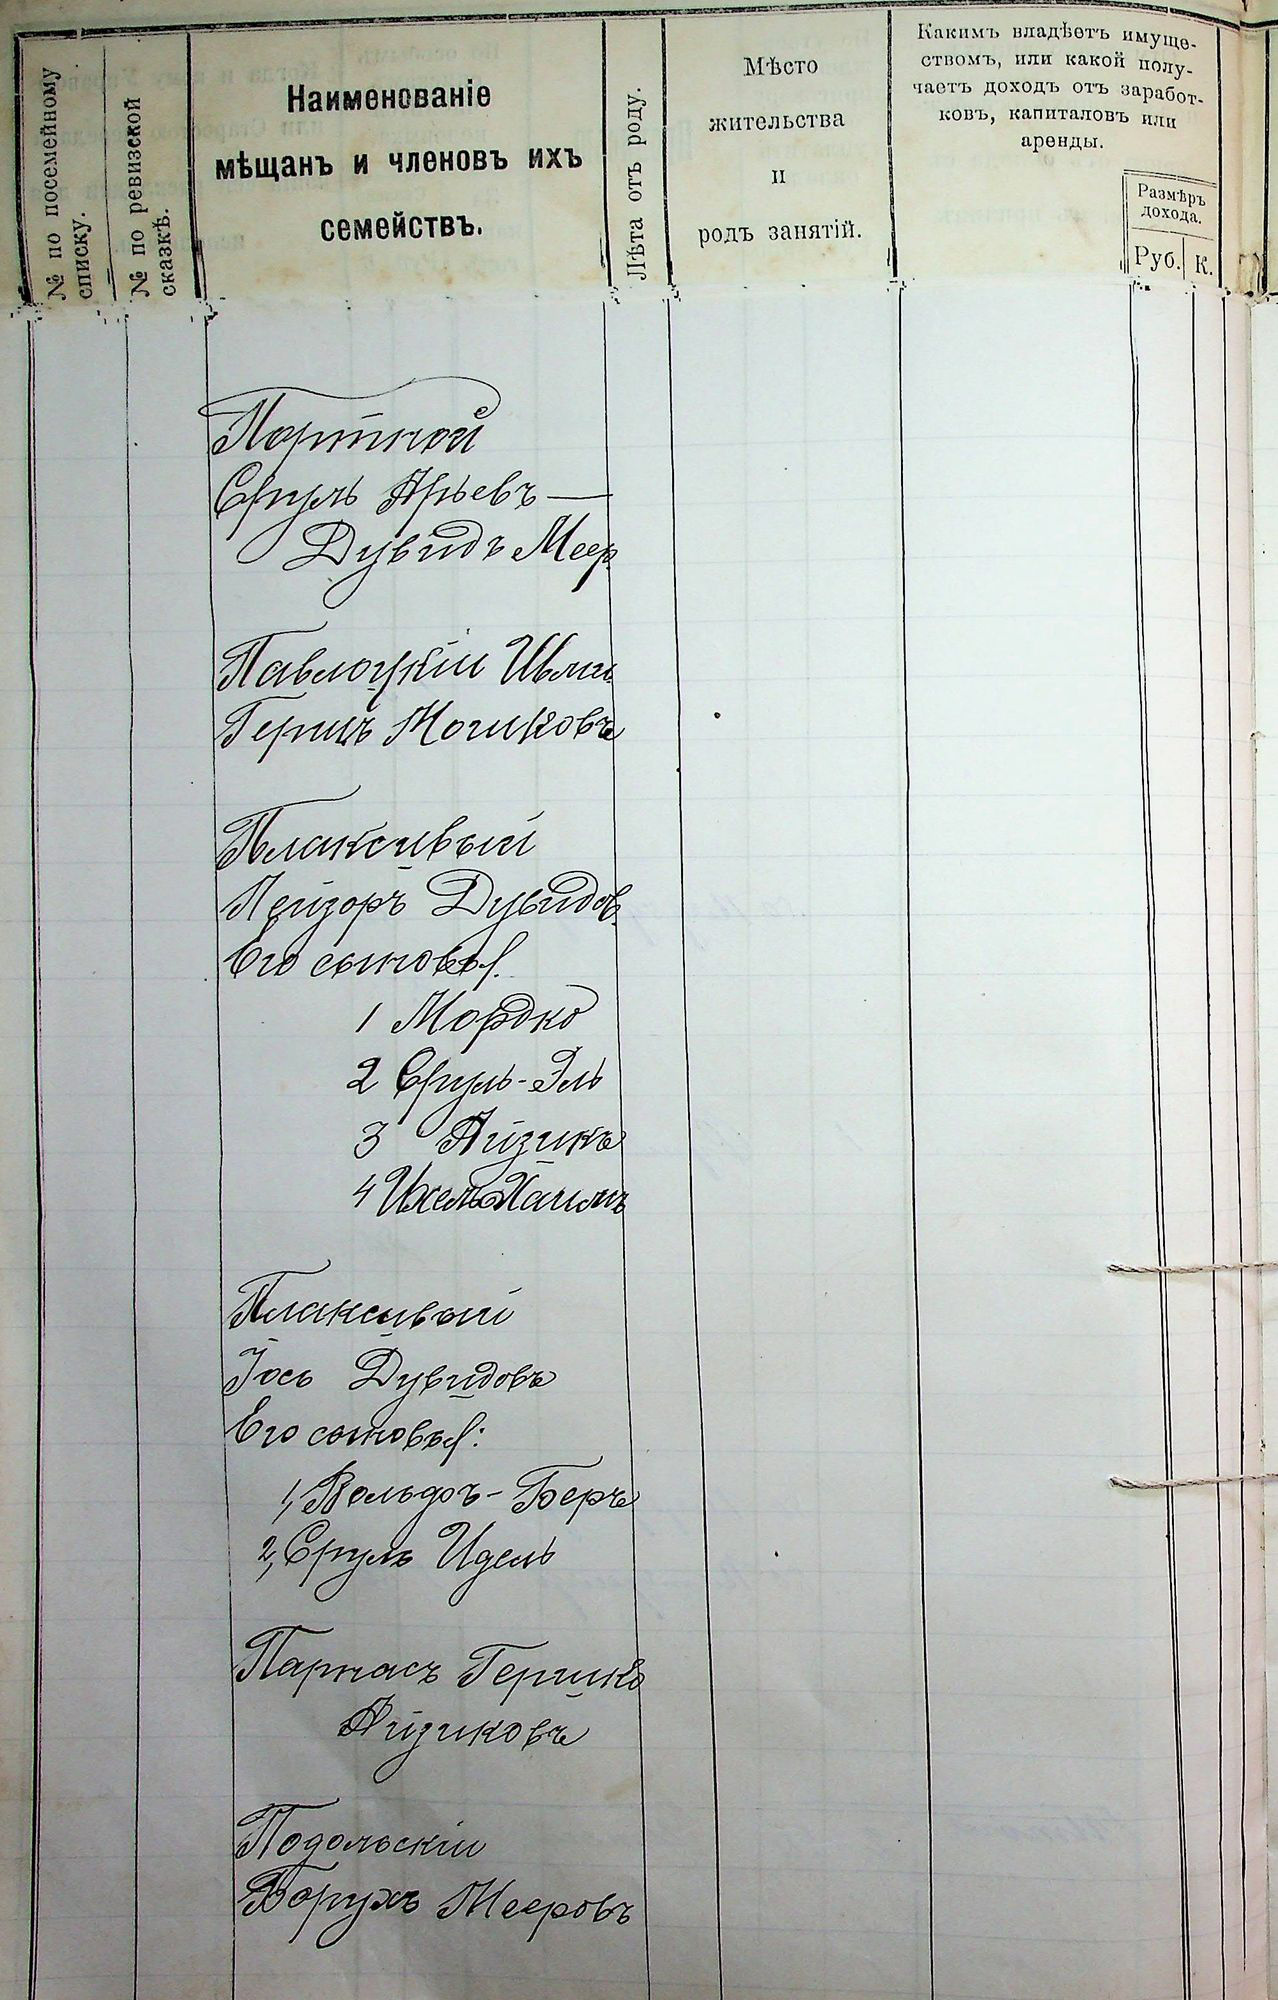 № по посемейному
списку.
№ по ревизской
сказкѣ.
Наименованіе
мѣщанъ и членовъ ихъ
семействъ.
Лѣта отъ роду.
Мѣсто
жительства
и
родъ занятій.
Какимъ владѣетъ имуще-
ствомъ, или какой полу-
чаетъ доходъ отъ заработ-
ковъ, капиталовъ или
аренды.
Размѣръ
дохода.
Руб.
К.
Портной
Сруль Арьевъ —
Дувидъ Меер
Павлоцкій
Герцъ
Плаксивый
Лейзоръ Дувидов.
Его сыновья
1 Мордко
2 Сруль-Эль
3 Айзикъ
4 Ихель Хаимъ
Плаксивый
Іось Дувидовъ
Его сыновья:
1, Вольфъ-Беръ
2, Сруль Идель
Парнасъ Гершко
Айзиковъ
Подольскій
Борухъ Мееровъ